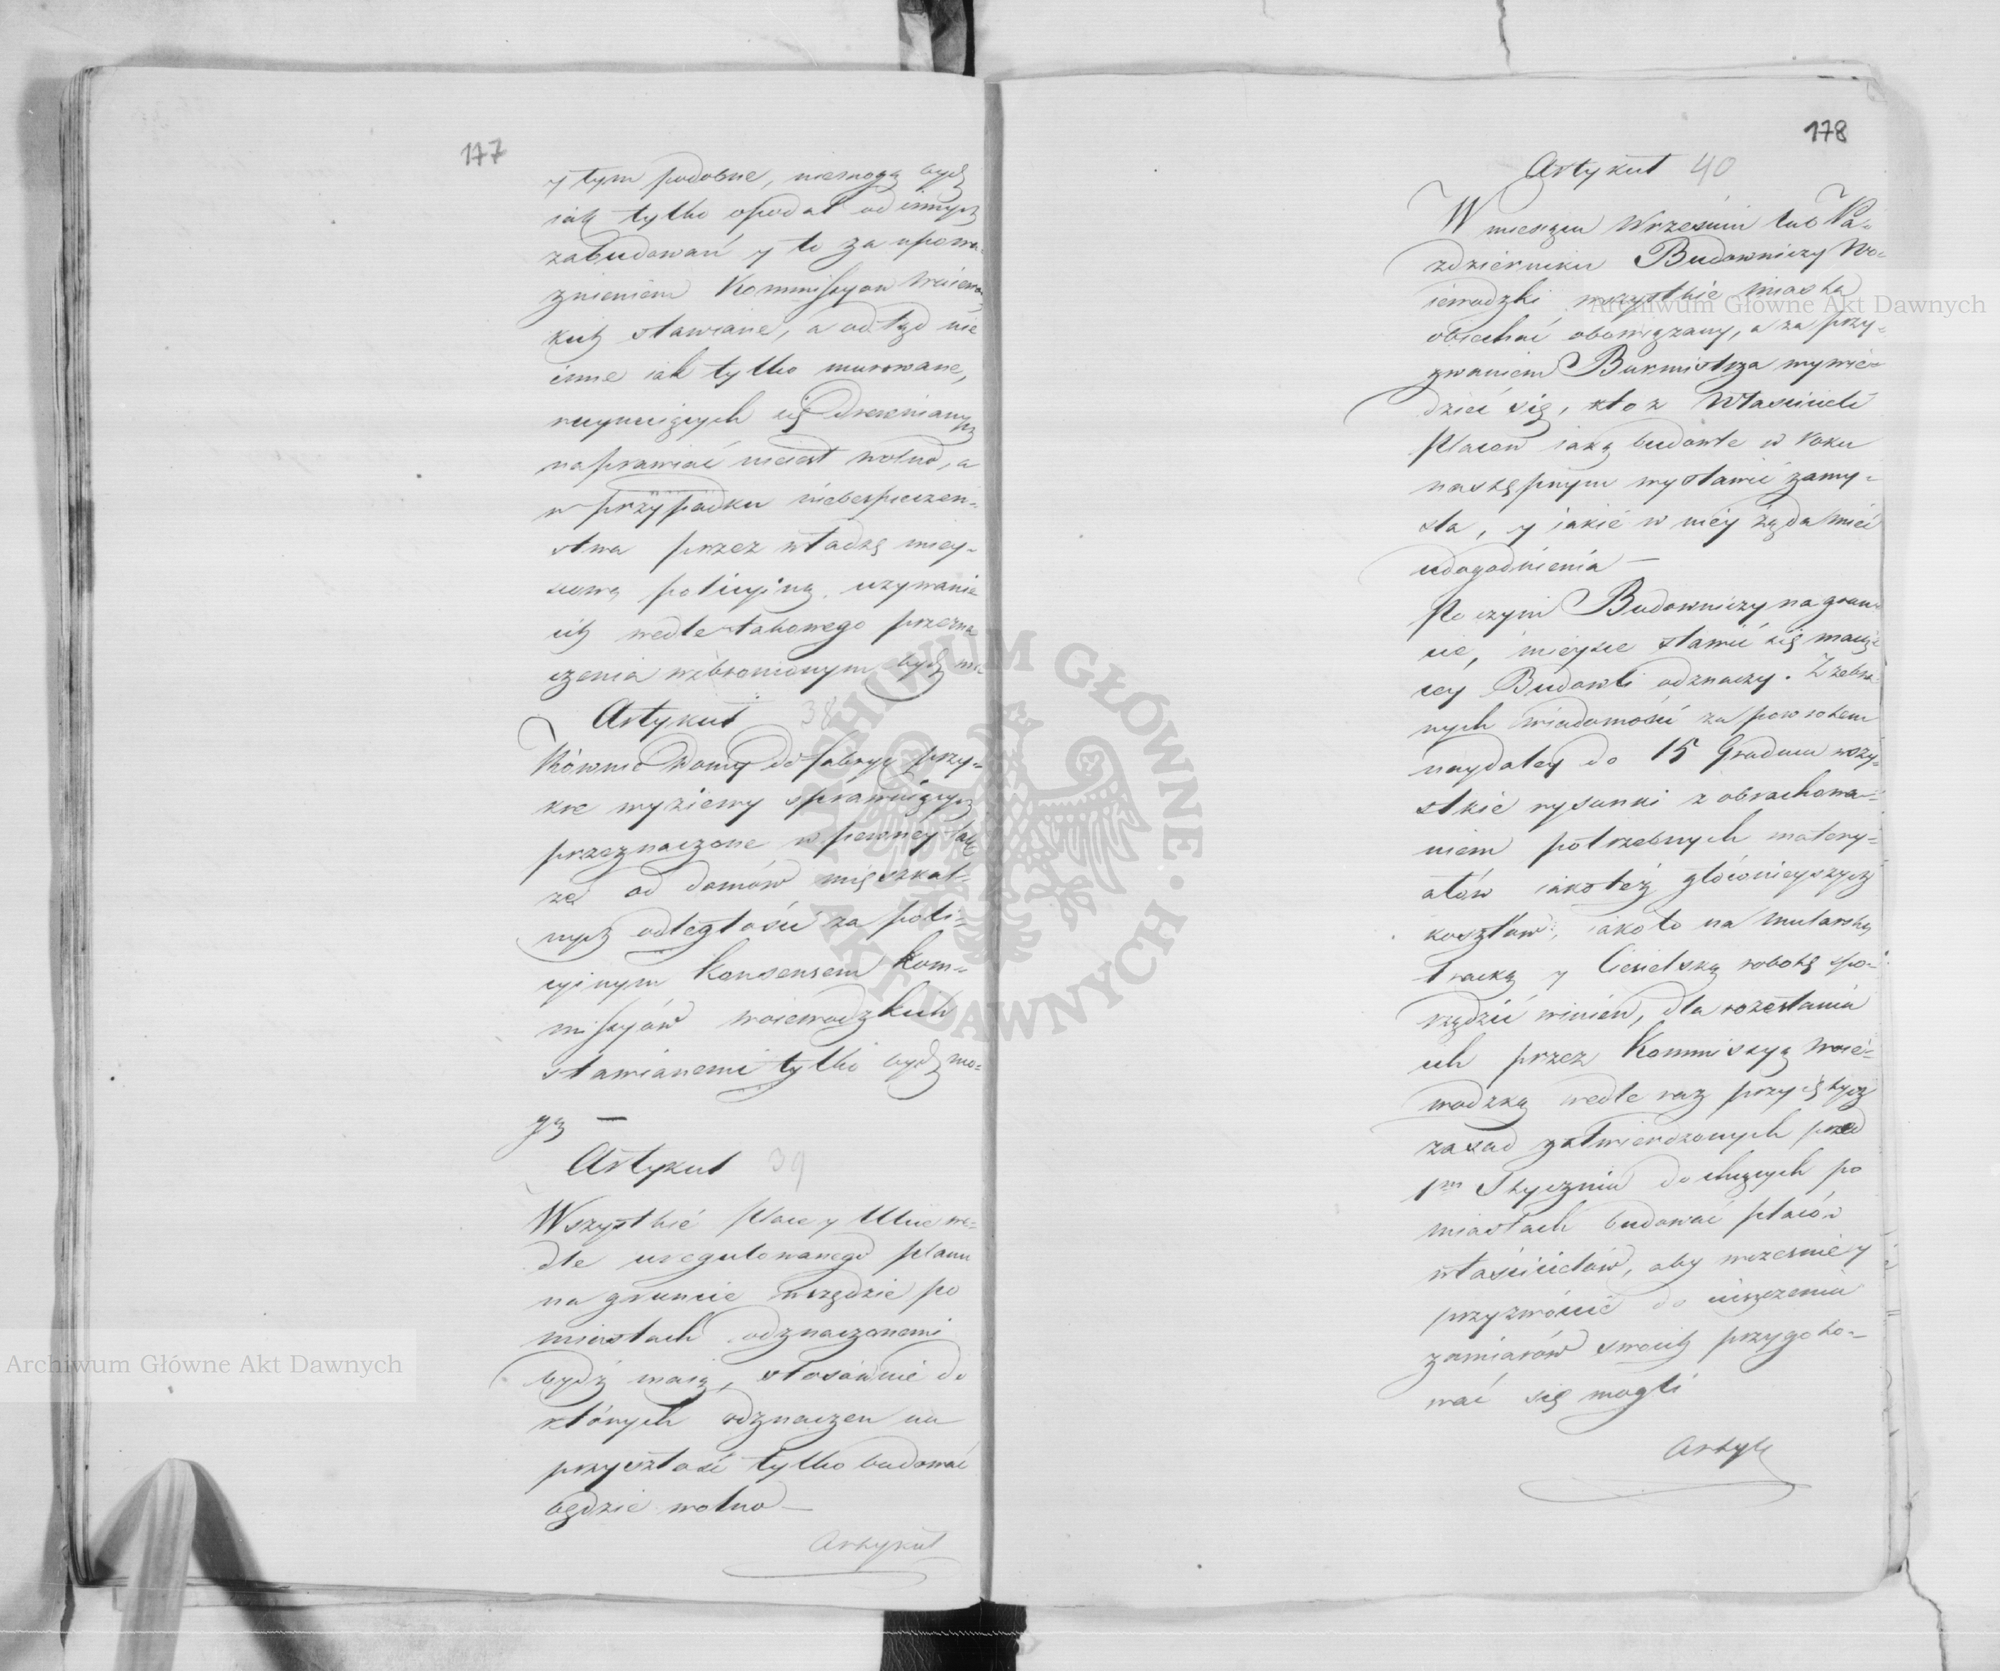 177
y tym podobne, niemogą bydź
iak tylko opodal od innych
zabudowań y to za upowa-
żnieniem Kommissyow Woiewo.
kich stawiane, a odtąd nie
inne iak tylko murowane,
drewnianych
naprawiać nieiest wolno, a
w przypadku niebespieczeń-
stwa przez władzę miey-
scową policyiną używanie
ich wedle takowego przezna
czenia wzbronionym bydź ma-
Artykuł 38
Równie Domy do fabryk przy-
kre wyziewy sprawuiących
przeznaczone w pewney tak
że od domów mięszkal-
nych odległości za poli-
cyinym Konsensem Kom-
missyów woiewodzkich
stawianemi tylko bydź mo-
gą —
Artykuł 39
Wszystkie Place y Ulice we-
dle uregulowanego planu
na gruncie wszędzie po
miastach odznaczonemi
bydź maią, stosownie do
których odznaczeń na
przyszłość tylko budować
będzie wolno —
Artykuł
178
Artykuł 40
W miesiącu Wrześniu lub Pa-
zdzierniku Budowniczy Wo-
iewodzki wszystkie miasta
obiechać obowiązany, a za przy-
zwaniem Burmistrza wywie-
dzieć się, kto z Właścicieli
Placow iaką budowle w roku
następnym wystawić zamy-
śla, y iakie w niey żąda mieć
udogodnienia —
Po czym Budowniczy na grun-
cie, mieysce stawić się maią-
cey Budowli odznaczy. Z zebra-
nych wiadomości za powrotem
naydaley do 15 Grudnia wszy-
stkie rysunki z obrachowa-
niem potrzebnych matery-
ałów iakoteż głównieyszych
kosztów, iako to na mularską
tracką y Ciesielską robotę spo-
rządzić winien, dla rozesłania
ich przez Kommissyą Woie-
wodzką wedle raz przyiętych
zasad zatwierdzonych przed
1m Stycznia do chcących po
miastach budować placów
właścicielów, aby wcześniey
przyzwoicie do uiszczenia
zamiarów swoich przygoto-
wać się mogli
Artyk
Archiwum Główne Akt Dawnych
Archiwum Główne Akt Dawnych
ARCHIWUM GŁÓWNE AKT DAWNYCH